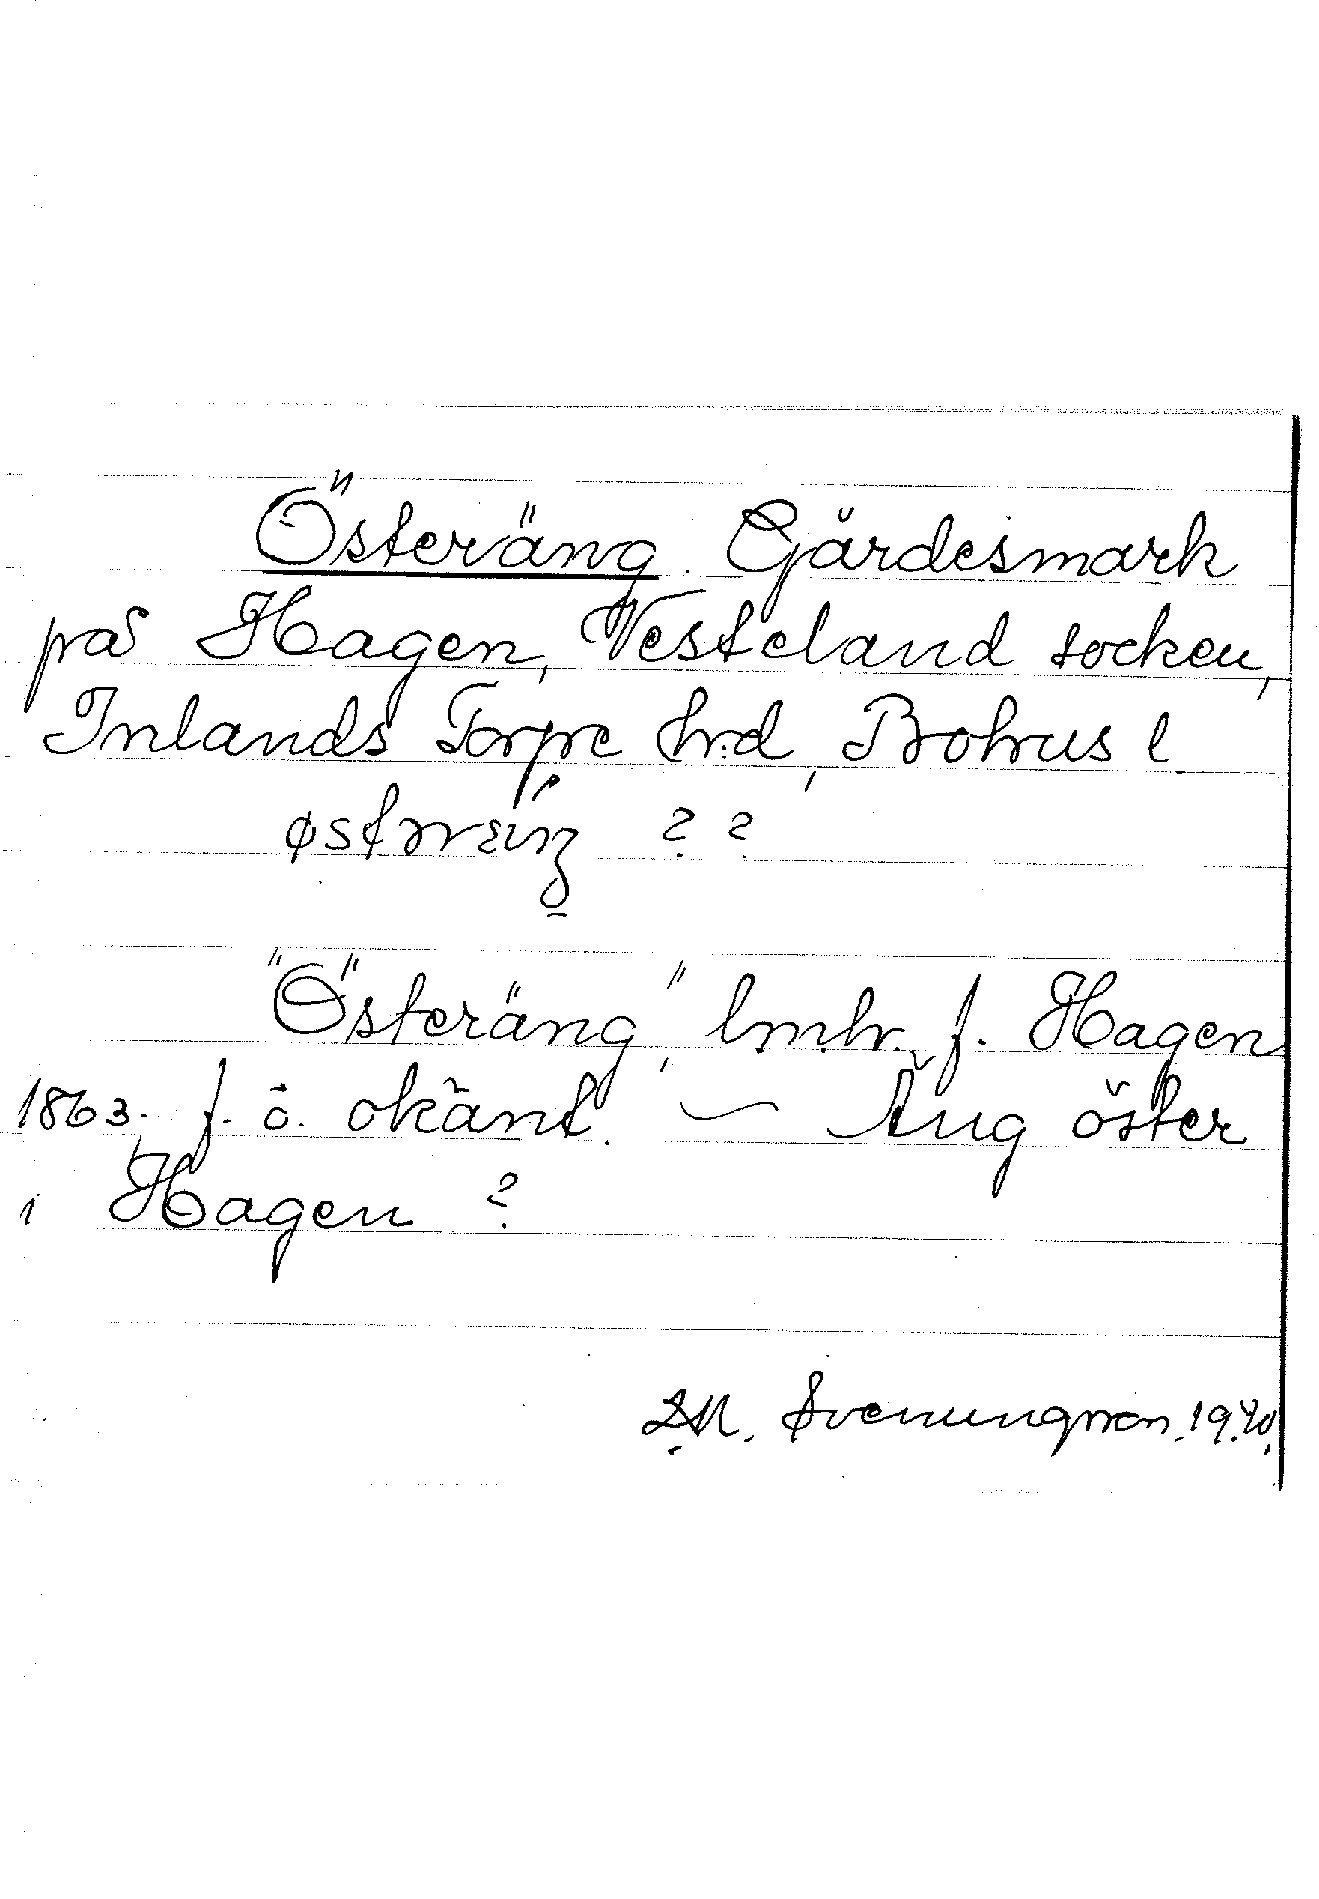 Österäng. Gärdesmark
på Hagen, Vesteland socken,
Inlands Torpe hrd, Bohus l
? ?
"Österäng", lmhr. f. Hagen
1863. f. ö. okänt. — Äng öster
i Hagen ?
Svenungsson. 1940.